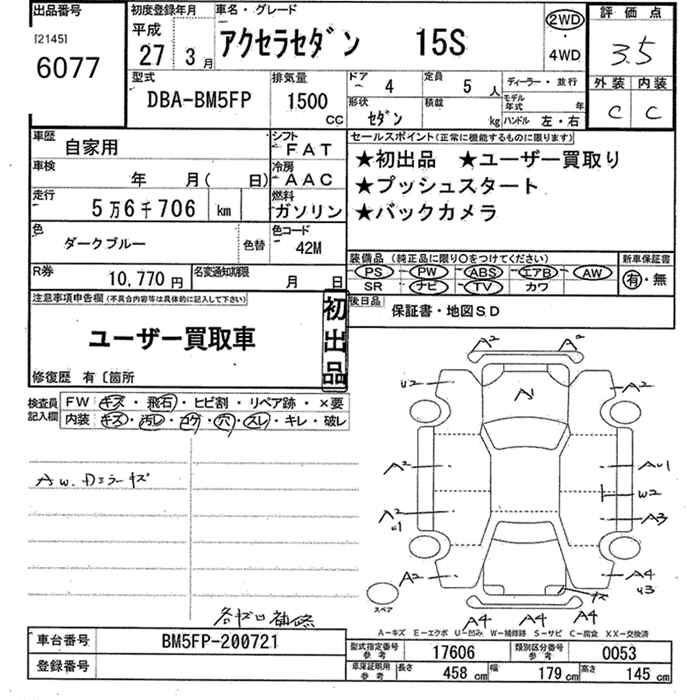 出品番号 初度登録年月 車名・グレード 評価点
[2145] 平成 2WD
6077 27年 3月 アクセラセダン 15S ・ 3.5
4WD
型式 排気量 ドア 4 定員 5人 ディーラー・並行 外装 内装
DBA-BM5FP 1500 CC 形状 セダン 積載 kg モデル年式 年 C C
ハンドル 左・右
車歴 自家用 シフト FAT セールスポイント(正常に機能するものに限ります)
車検 年 月( 日) 冷房 AAC ★初出品 ★ユーザー買取り
走行 5万6千706 km 燃料 ガソリン ★プッシュスタート
★バックカメラ
色 ダークブルー 色替 色コード 42M
装備品(純正品に限り○をつけてください) 新車保証書
R券 10,770円 名変通知期限 月 日 PS PW ABS エアB AW 有・無
SR ナビ TV カワ
注意事項申告欄(不具合内容等は具体的に記入して下さい) 初出品 後日品 保証書・地図SD
ユーザー買取車
修復歴 有〔箇所
検査員記入欄 FW キズ・飛石・ヒビ割・リペア跡・×要
内装 キズ・汚レ・コゲ・穴・スレ・キレ・破レ
A2 A2
U2 A1 A2
A2 AU1
W2
A2 U1 A3
A2 キズ A4 U3
A4 A4 A4
スペア
A-キズ E-エクボ U-凹み W-補修跡 S-サビ C-腐食 XX-交換済
車台番号 BM5FP-200721 型式指定番号参考 17606 類別区分番号参考 0053
登録番号 車庫証明用参考 長さ 458cm 幅 179cm 高さ 145cm